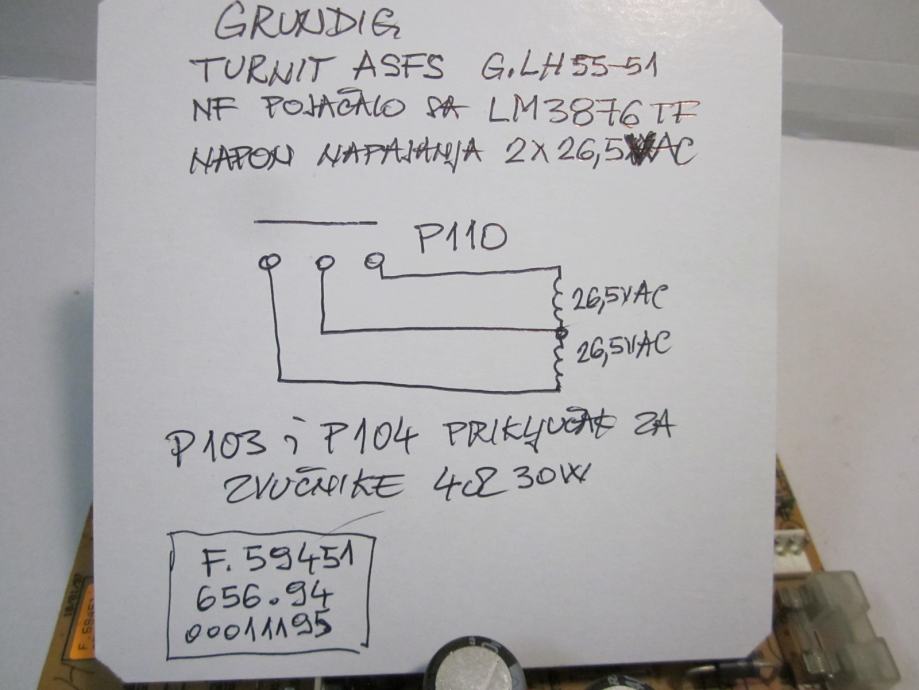 GRUNDIG
TURNIT ASFS G.LH55-51
NF POJAČALO SA LM3876TF
NAPON NAPAJANJA 2X26,5 AC
P110
26,5VAC
26,5VAC
P103 i P104 PRIKLJUČAK ZA
ZVUČNIKE 4Ω 30W
F.59451
656.94
00011195